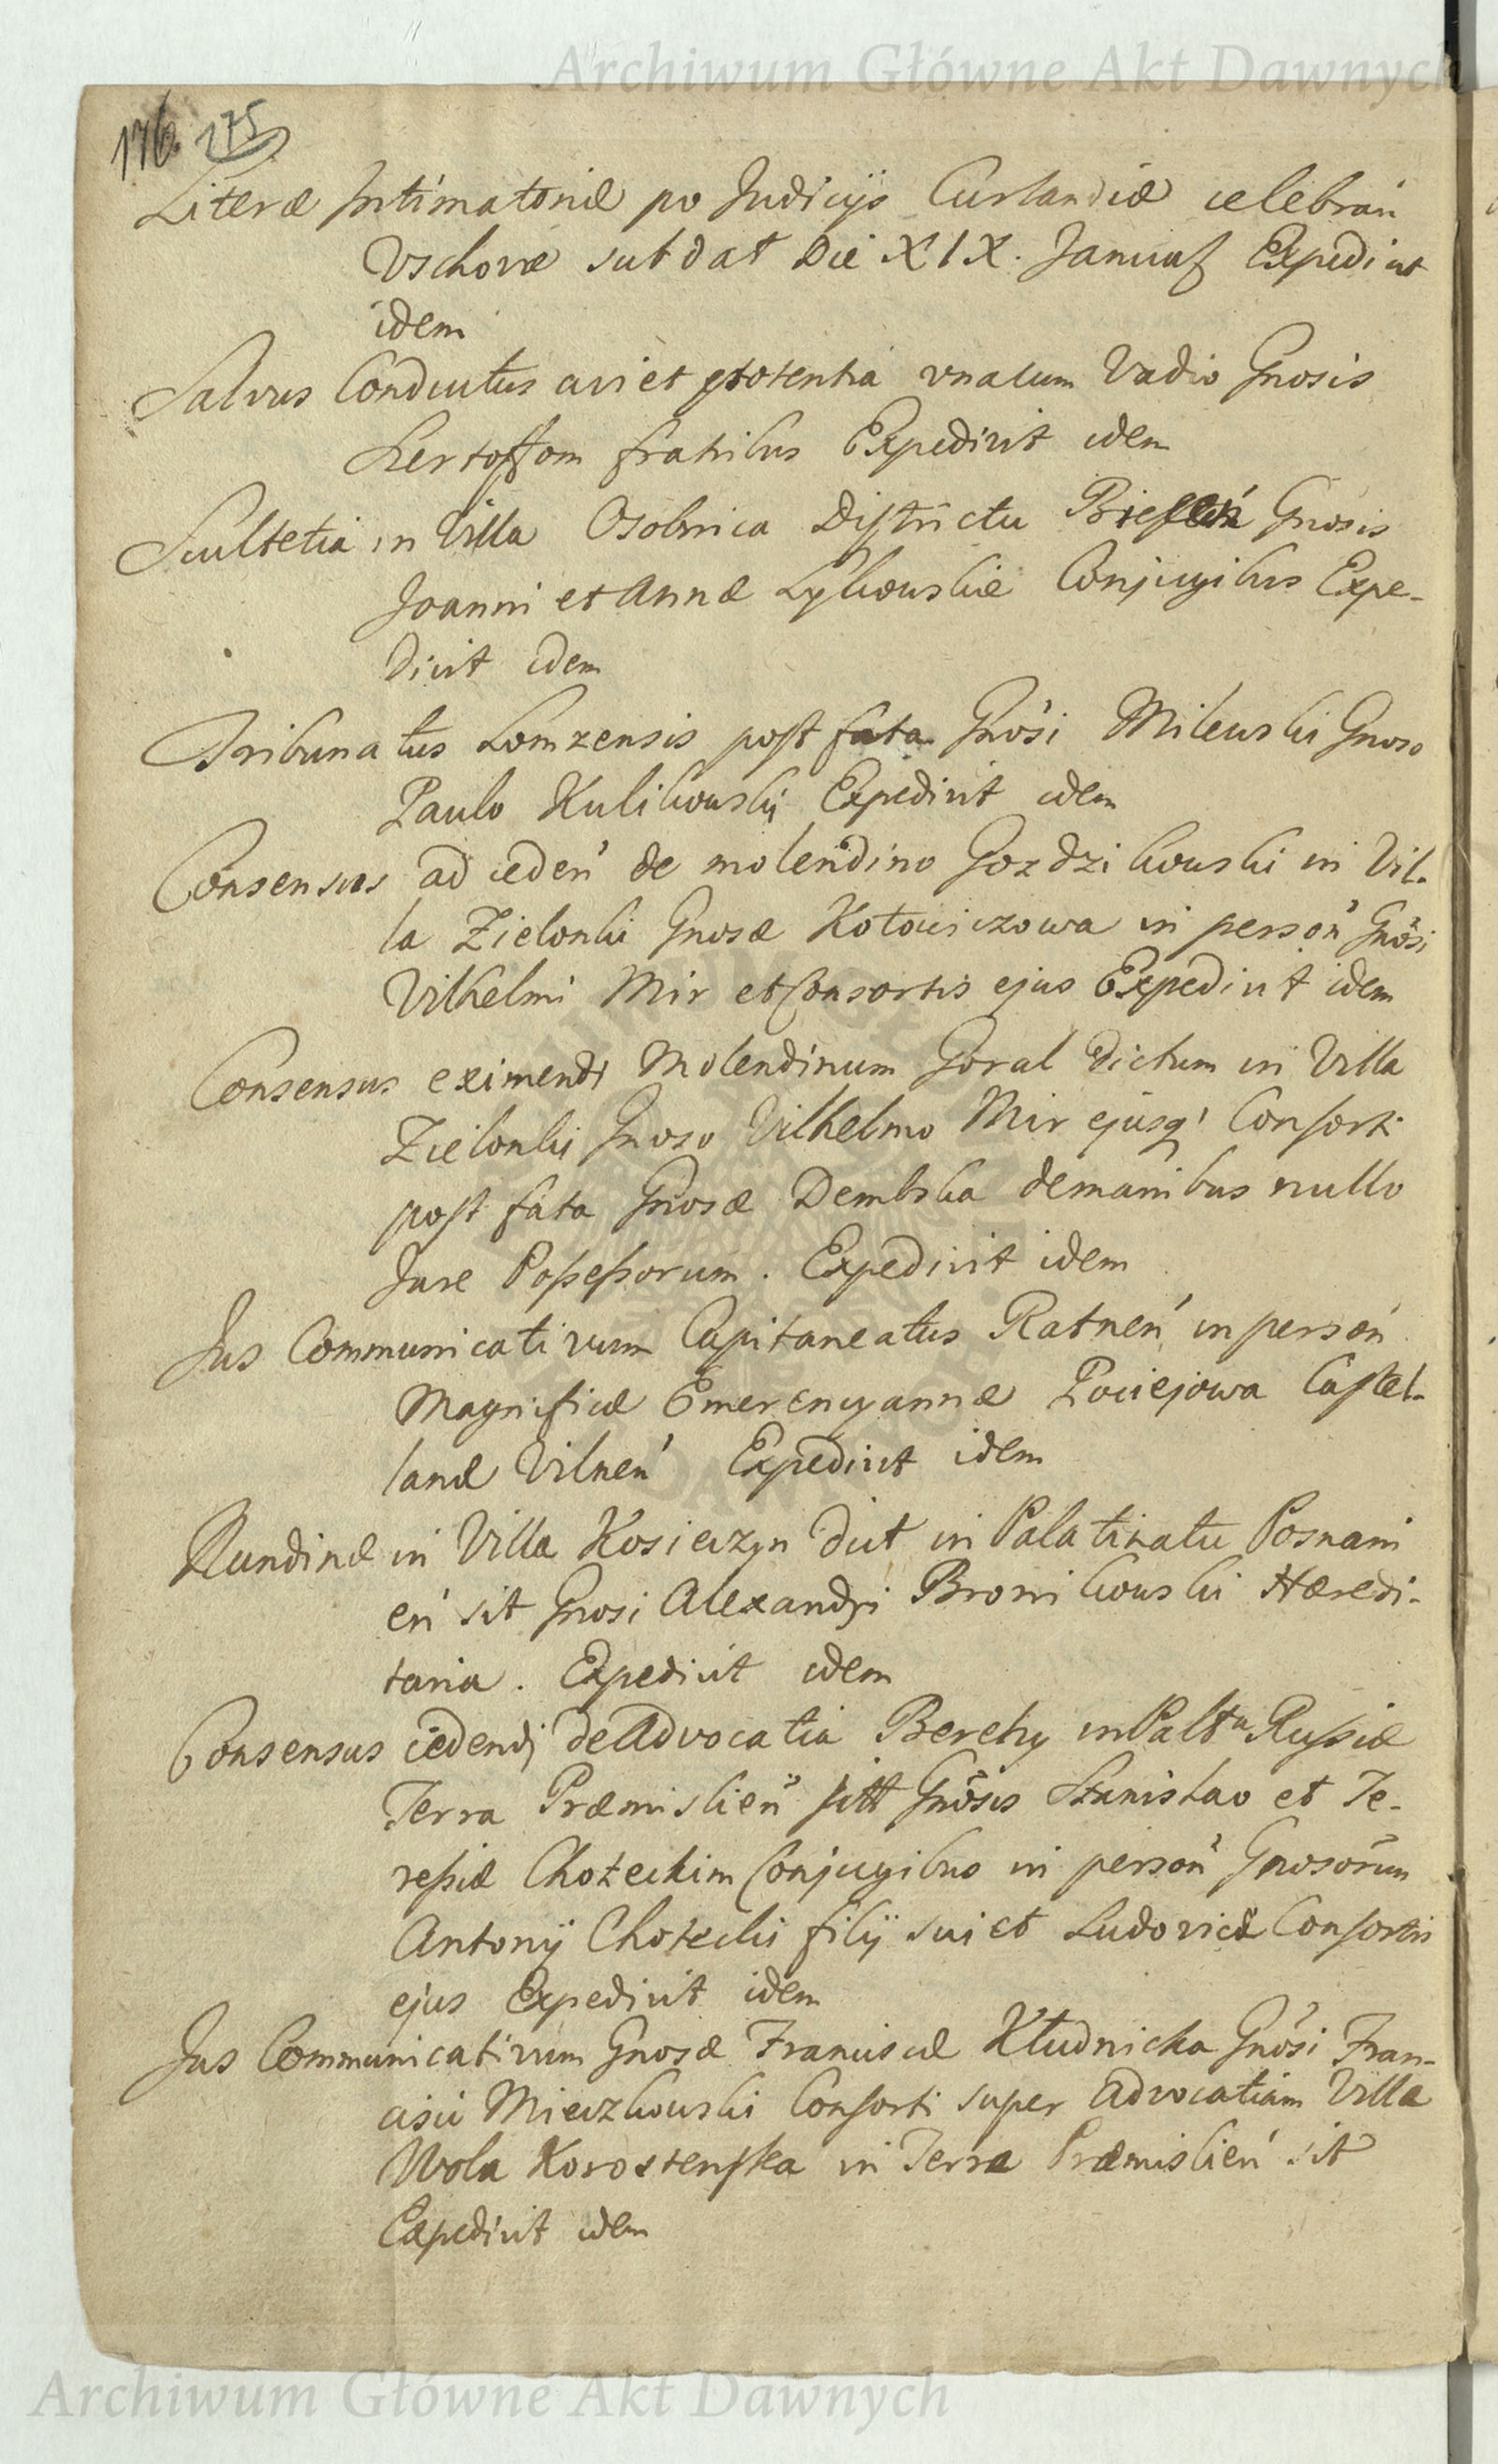 Archiwum Główne Akt Dawnych
176. 175
Literæ Intimatoriæ po Judicijs Curlandiæ celebran
Vschovæ sub dat Die XIX. Januar Expedivit
idem
Salvus Conductus a vi et potentia vnacum Vadio Gnosis
fratribus Expedivit idem
Scultetia in Villa Osobnica Districtu Biecen Gnosis
Joanni et Annæ Lykowskie Conjugibus Expe-
divit idem
Tribunatus Lomzensis post fata Gnosi Milewski Gnoso
Paulo Kulikowski Expedivit idem
Consensus ad ceden de molendino Gozdzikowski in Vil-
la Zielonki Gnosæ Kotowiczowa in person Gnosi
Vilhelmi Mir et Consortis ejus Expedivit idem
Consensus eximendi Molendinum Goral dictum in Villa
Zielonki Gnoso Vilhelmo Mir ejusq Consorti
post fata Gnosæ Dembska de manibus nullo
Jure Possessorum. Expedivit idem
Jus Communicativum Capitaneatus Ratnen in person
Magnificæ Emerencyannæ Pociejowa Castel-
lanæ Vilnen Expedivit idem
Nundinæ in Villa Kosieczyn dict in Palatinatu Posnani
en sit Gnosi Alexandri Bronikowski Hæredi-
taria. Expedivit idem
Consensus cedendi de Advocatia Berehy in Paltu Russiæ
Terra Præmislien sitt Gnosis Stanislao et Te-
ressiæ Choteckim Conjugibus in person Gnosorum
Antonij Chotecki filij sui et Ludovicæ Consortis
ejus Expedivit idem
Jus Communicativum Gnosæ Franciscæ Kłudnicka Gnosi Fran-
cisci Mieczkowski Consorti super Advocatiam Villæ
Wola Korostenska in Terra Præmislien sit
Expedivit idem
Archiwum Główne Akt Dawnych